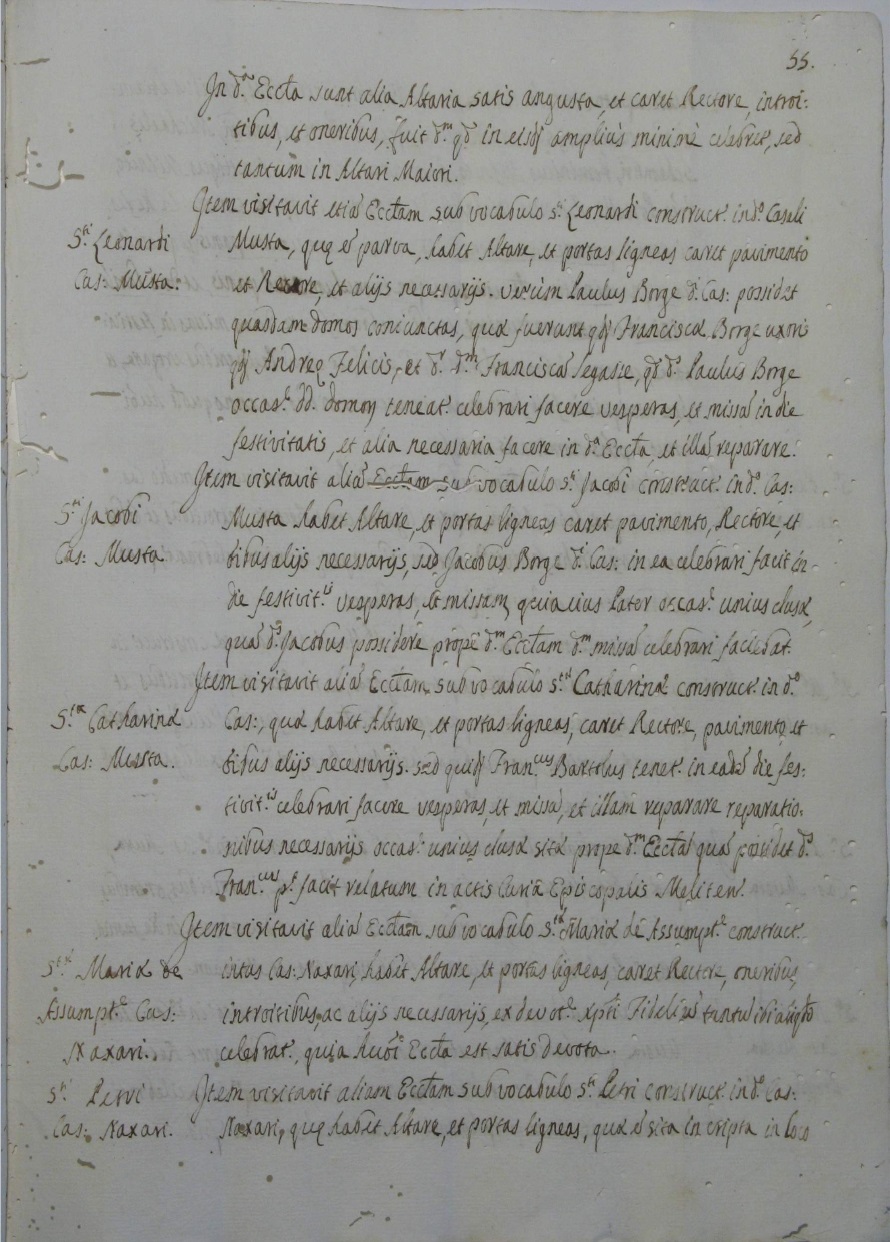 55.
In d.ª Eccl̃a sunt alia Altaria satis angusta, et caret Rectore, introi:
tibus, et oneribus, fuit d.m qd̃ in eisdj amplius minimè celebret, sed
tantum in Altari Maiori.
Item visitavit etiã Eccl̃am sub vocabulo S.ti Leonardi construct. in d.º Casali
S.ti Leonardi
Cas: Musta:
Musta, quę ẽ parva, habet Altare, et portas ligneas caret pavimento
et Rectore, et alijs necessarijs. verùm Paulus Borge d. Cas: possidet
quasdam domos coniunctas, quæ fuerunt qdj Franciscæ Borge uxoris
qdj Andreę Felicis, et d. d.m Franciscã legasse, qd̃ d.s Paulus Borge
occas.e dd. domorj teneat.r celebrari facere vesperas, et missã in die
festivitatis, et alia necessaria facere in d.ª Eccl̃a, et illã reparare.
Item visitavit aliã Eccl̃am sub vocabulo S.ti Jacobi construct. in d.º Cas:
S.ti Jacobi
Cas: Musta
Musta habet Altare, et portas ligneas caret pavimento, Rectore, et
tibus alijs necessarijs, sed Jacobus Borge d.i Cas: in ea celebrari facit in
die festivit.is vesperas, et missam, quia eius Pater occas.e unius clusæ,
quã d.s Jacobus possidere propè d.m Eccl̃am d.m missã celebrari faciebat.
Item visitavit aliã Eccl̃am sub vocabulo S.tæ Catharinæ construct. in d.º
S.tæ Catharinæ
Cas: Musta.
Cas:, quæ habet Altare, et portas ligneas, caret Rectore, pavimento, et
tibus alijs necessarijs. sed quidj Fran.cus Bartolus tenet.r in eadẽ die fes:
tivit.is celebrari facere vesperas, et missã, et illam reparare reparatio:
nibus necessarijs occas.e unius clusæ sitæ prope d.m Eccl̃ã quã possidet d.s
Fran.cus p.t facit relatum in actis Curiæ Episcopalis Meliten.
Item visitavit aliã Eccl̃am sub vocabulo S.tæ Mariæ de Assumpt.e construct.
S.tæ Mariæ de
Assumpt.e Cas:
Naxari.
intus Cas: Naxari, habet Altare, et portas ligneas, caret Rectore, oneribus,
introitibus, ac alijs necessarijs, ex devot.e xp̃ti Fideliũ tantũ ibi aliqñ
celebrat.r, quia huiõi Eccl̃a est satis devota.
S.ti Petri
Cas: Naxari.
Item visitavit aliam Eccl̃am sub vocabulo S.ti Petri construct. in d.º Cas:
Naxari, quę habet Altare, et portas ligneas, quæ ẽ sita in cripta in loco